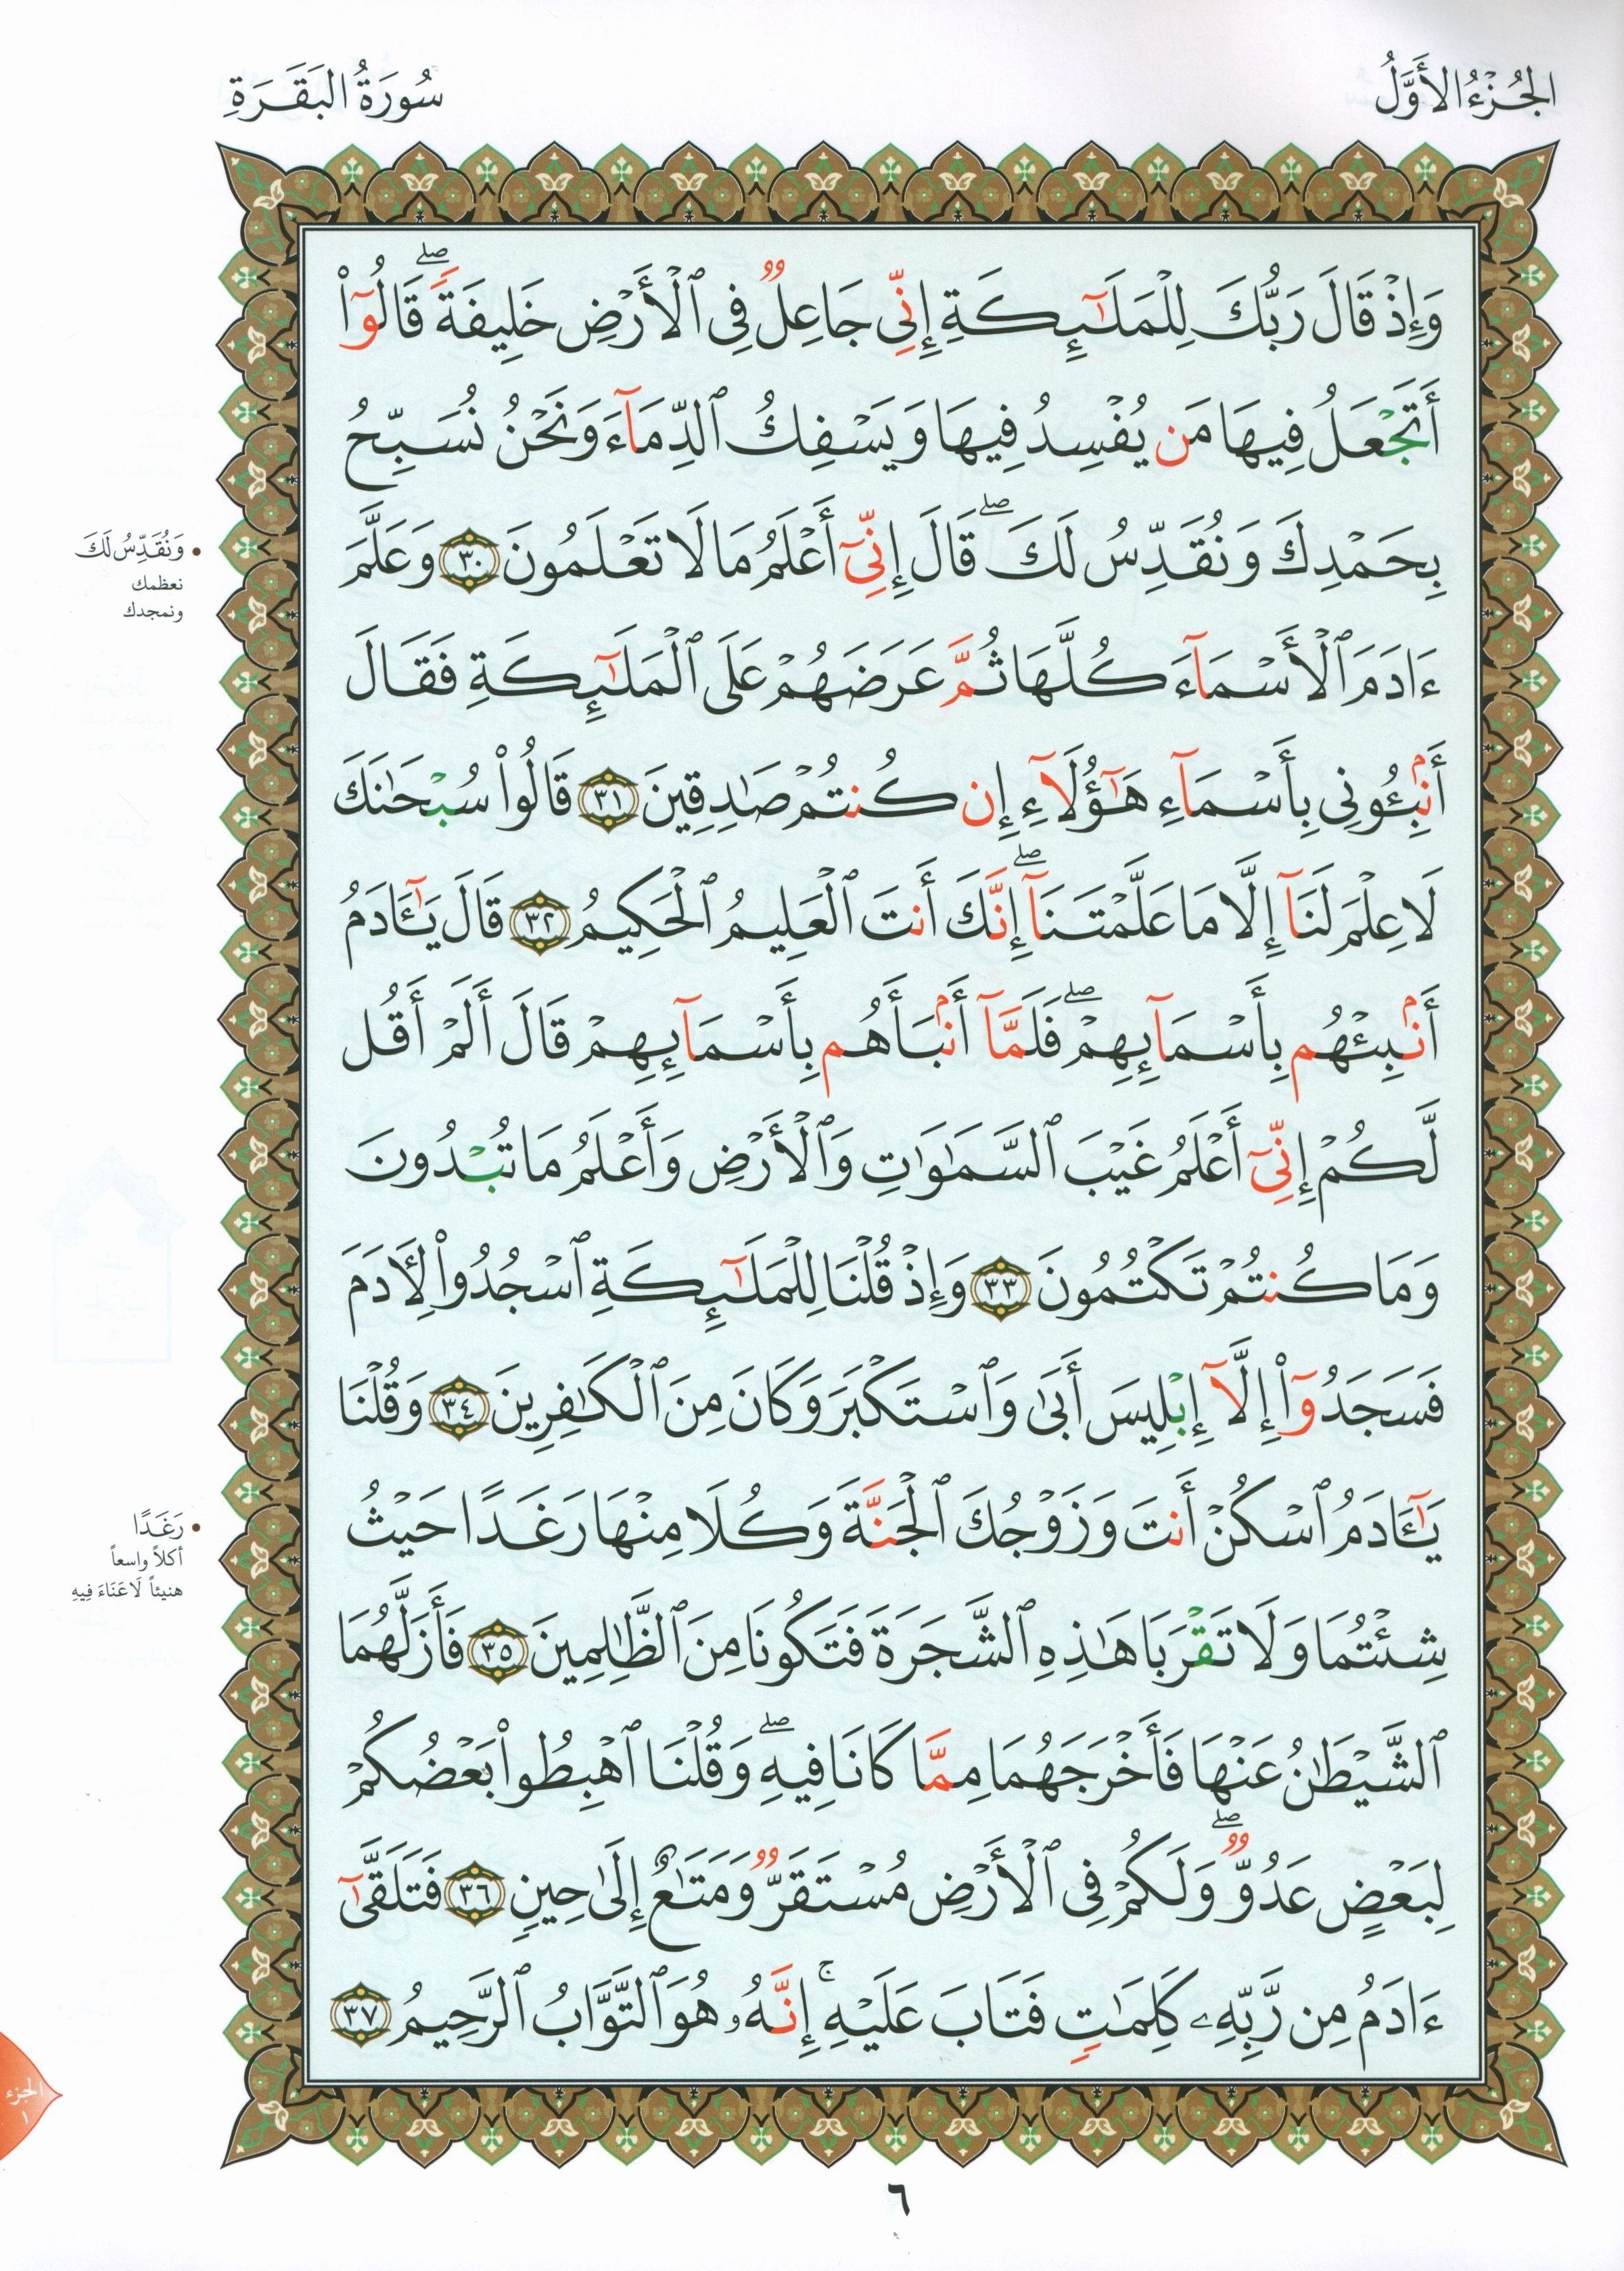 الجُزْءُ الأَوَّلُ
سُورَةُ البَقَرَةِ
وَإِذْ قَالَ رَبُّكَ لِلْمَلَٰٓئِكَةِ إِنِّى جَاعِلٌ فِى ٱلْأَرْضِ خَلِيفَةً ۖ قَالُوٓا۟
أَتَجْعَلُ فِيهَا مَن يُفْسِدُ فِيهَا وَيَسْفِكُ ٱلدِّمَآءَ وَنَحْنُ نُسَبِّحُ
بِحَمْدِكَ وَنُقَدِّسُ لَكَ ۖ قَالَ إِنِّىٓ أَعْلَمُ مَا لَا تَعْلَمُونَ ٣٠ وَعَلَّمَ
ءَادَمَ ٱلْأَسْمَآءَ كُلَّهَا ثُمَّ عَرَضَهُمْ عَلَى ٱلْمَلَٰٓئِكَةِ فَقَالَ
أَنۢبِـُٔونِى بِأَسْمَآءِ هَٰٓؤُلَآءِ إِن كُنتُمْ صَٰدِقِينَ ٣١ قَالُوا۟ سُبْحَٰنَكَ
لَا عِلْمَ لَنَآ إِلَّا مَا عَلَّمْتَنَآ ۖ إِنَّكَ أَنتَ ٱلْعَلِيمُ ٱلْحَكِيمُ ٣٢ قَالَ يَٰٓـَٔادَمُ
أَنۢبِئْهُم بِأَسْمَآئِهِمْ ۖ فَلَمَّآ أَنۢبَأَهُم بِأَسْمَآئِهِمْ قَالَ أَلَمْ أَقُل
لَّكُمْ إِنِّىٓ أَعْلَمُ غَيْبَ ٱلسَّمَٰوَٰتِ وَٱلْأَرْضِ وَأَعْلَمُ مَا تُبْدُونَ
وَمَا كُنتُمْ تَكْتُمُونَ ٣٣ وَإِذْ قُلْنَا لِلْمَلَٰٓئِكَةِ ٱسْجُدُوا۟ لِـَٔادَمَ
فَسَجَدُوٓا۟ إِلَّآ إِبْلِيسَ أَبَىٰ وَٱسْتَكْبَرَ وَكَانَ مِنَ ٱلْكَٰفِرِينَ ٣٤ وَقُلْنَا
يَٰٓـَٔادَمُ ٱسْكُنْ أَنتَ وَزَوْجُكَ ٱلْجَنَّةَ وَكُلَا مِنْهَا رَغَدًا حَيْثُ
شِئْتُمَا وَلَا تَقْرَبَا هَٰذِهِ ٱلشَّجَرَةَ فَتَكُونَا مِنَ ٱلظَّٰلِمِينَ ٣٥ فَأَزَلَّهُمَا
ٱلشَّيْطَٰنُ عَنْهَا فَأَخْرَجَهُمَا مِمَّا كَانَا فِيهِ ۖ وَقُلْنَا ٱهْبِطُوا۟ بَعْضُكُمْ
لِبَعْضٍ عَدُوٌّ ۖ وَلَكُمْ فِى ٱلْأَرْضِ مُسْتَقَرٌّ وَمَتَٰعٌ إِلَىٰ حِينٍ ٣٦ فَتَلَقَّىٰٓ
ءَادَمُ مِن رَّبِّهِۦ كَلِمَٰتٍ فَتَابَ عَلَيْهِ ۚ إِنَّهُۥ هُوَ ٱلتَّوَّابُ ٱلرَّحِيمُ ٣٧
• وَنُقَدِّسُ لَكَ
نعظمك
ونمجدك
• رَغَدًا
أكلاً واسعاً
هنيئاً لَا عَنَاءَ فِيهِ
الجزء
١
٦